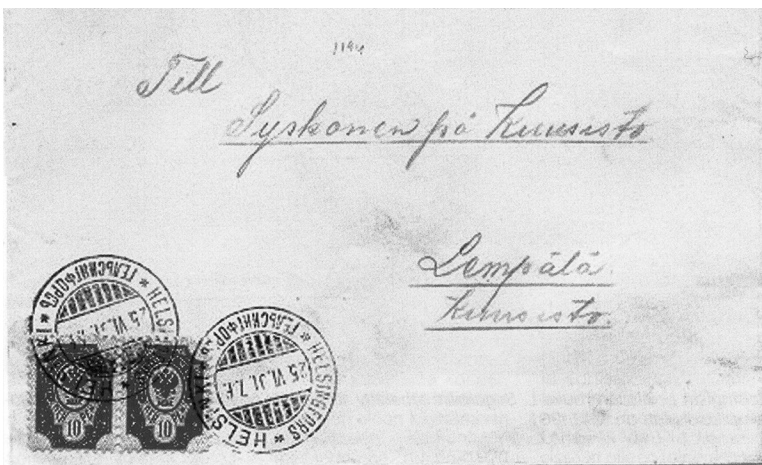 1194
Till
Syskonen på Kuusisto
Lempälä.
Kuusisto.
HELSINKI * ГЕЛЬСИНГФОРСЪ * HELSINGFORS *
HELSINKI * ГЕЛЬСИНГФОРСЪ * HELSINGFORS *
25.VI.
10
10